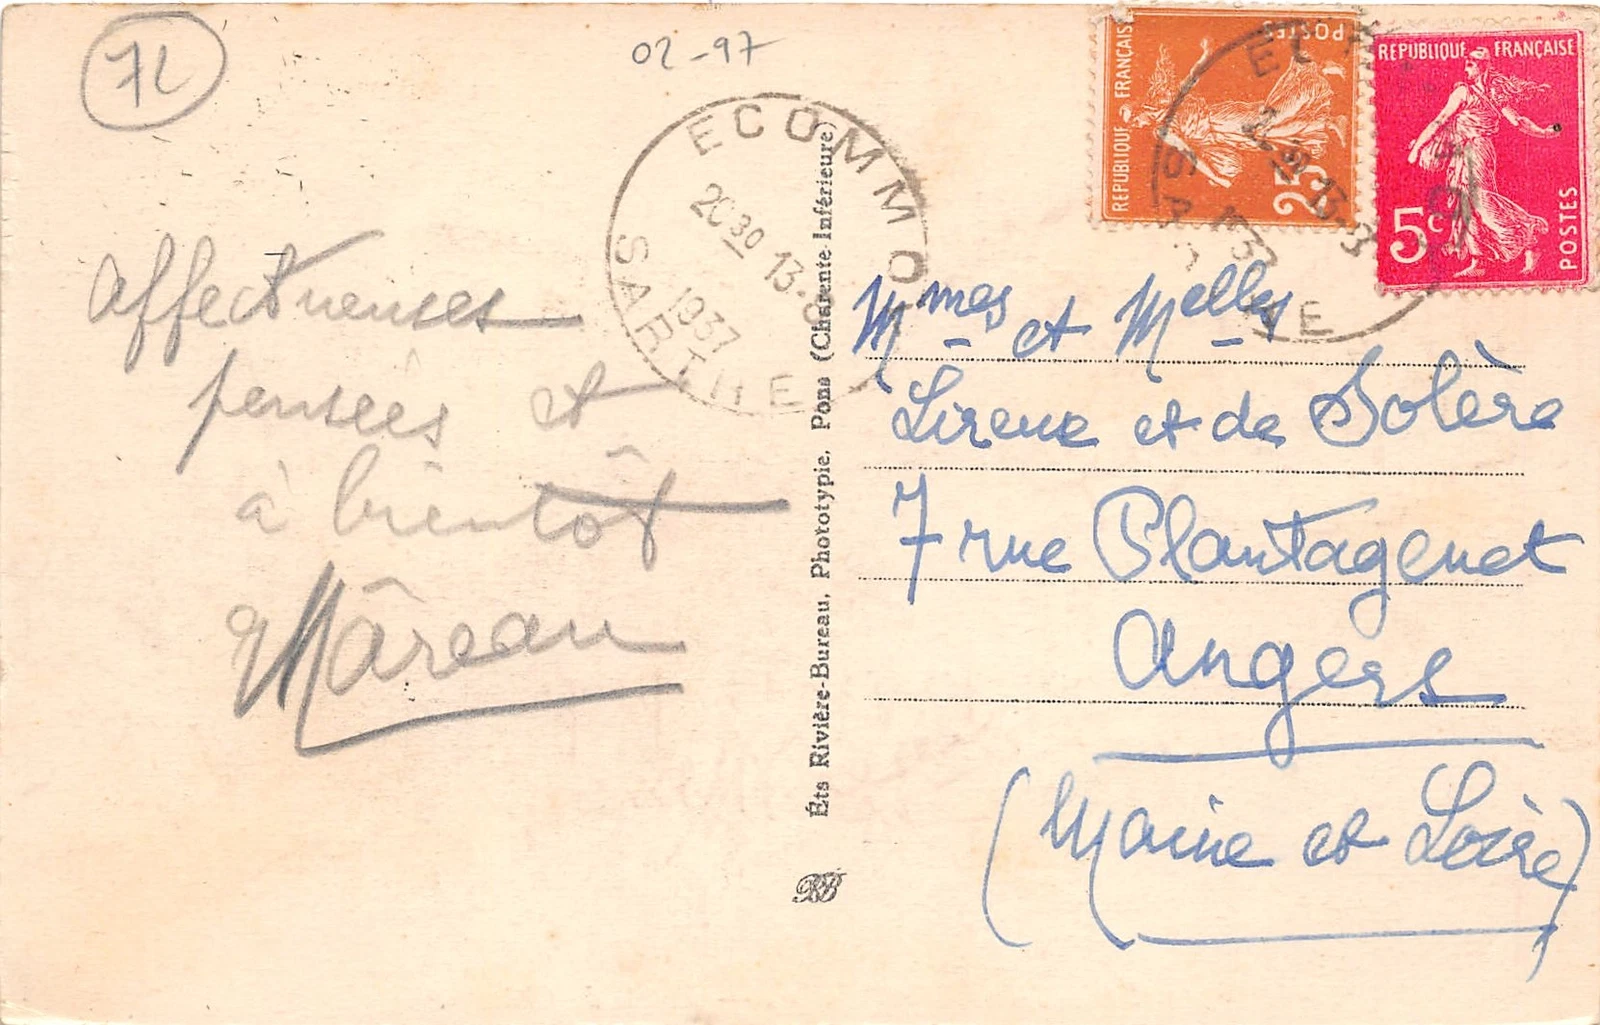 72
02-97
ECOMMOY
20 30 13-8
1937
SARTHE
RÉPUBLIQUE FRANÇAISE
25c
POSTES
RÉPUBLIQUE FRANÇAISE
5c
POSTES
affectueuses
pensées et
à bientôt
Mâreau
Éts Rivière-Bureau, Phototypie, Pons (Charente-Inférieure)
RB
Mmes et Melles
Lireux et de Solère
7 rue Plantagenet
Angers
(Maine et Loire)